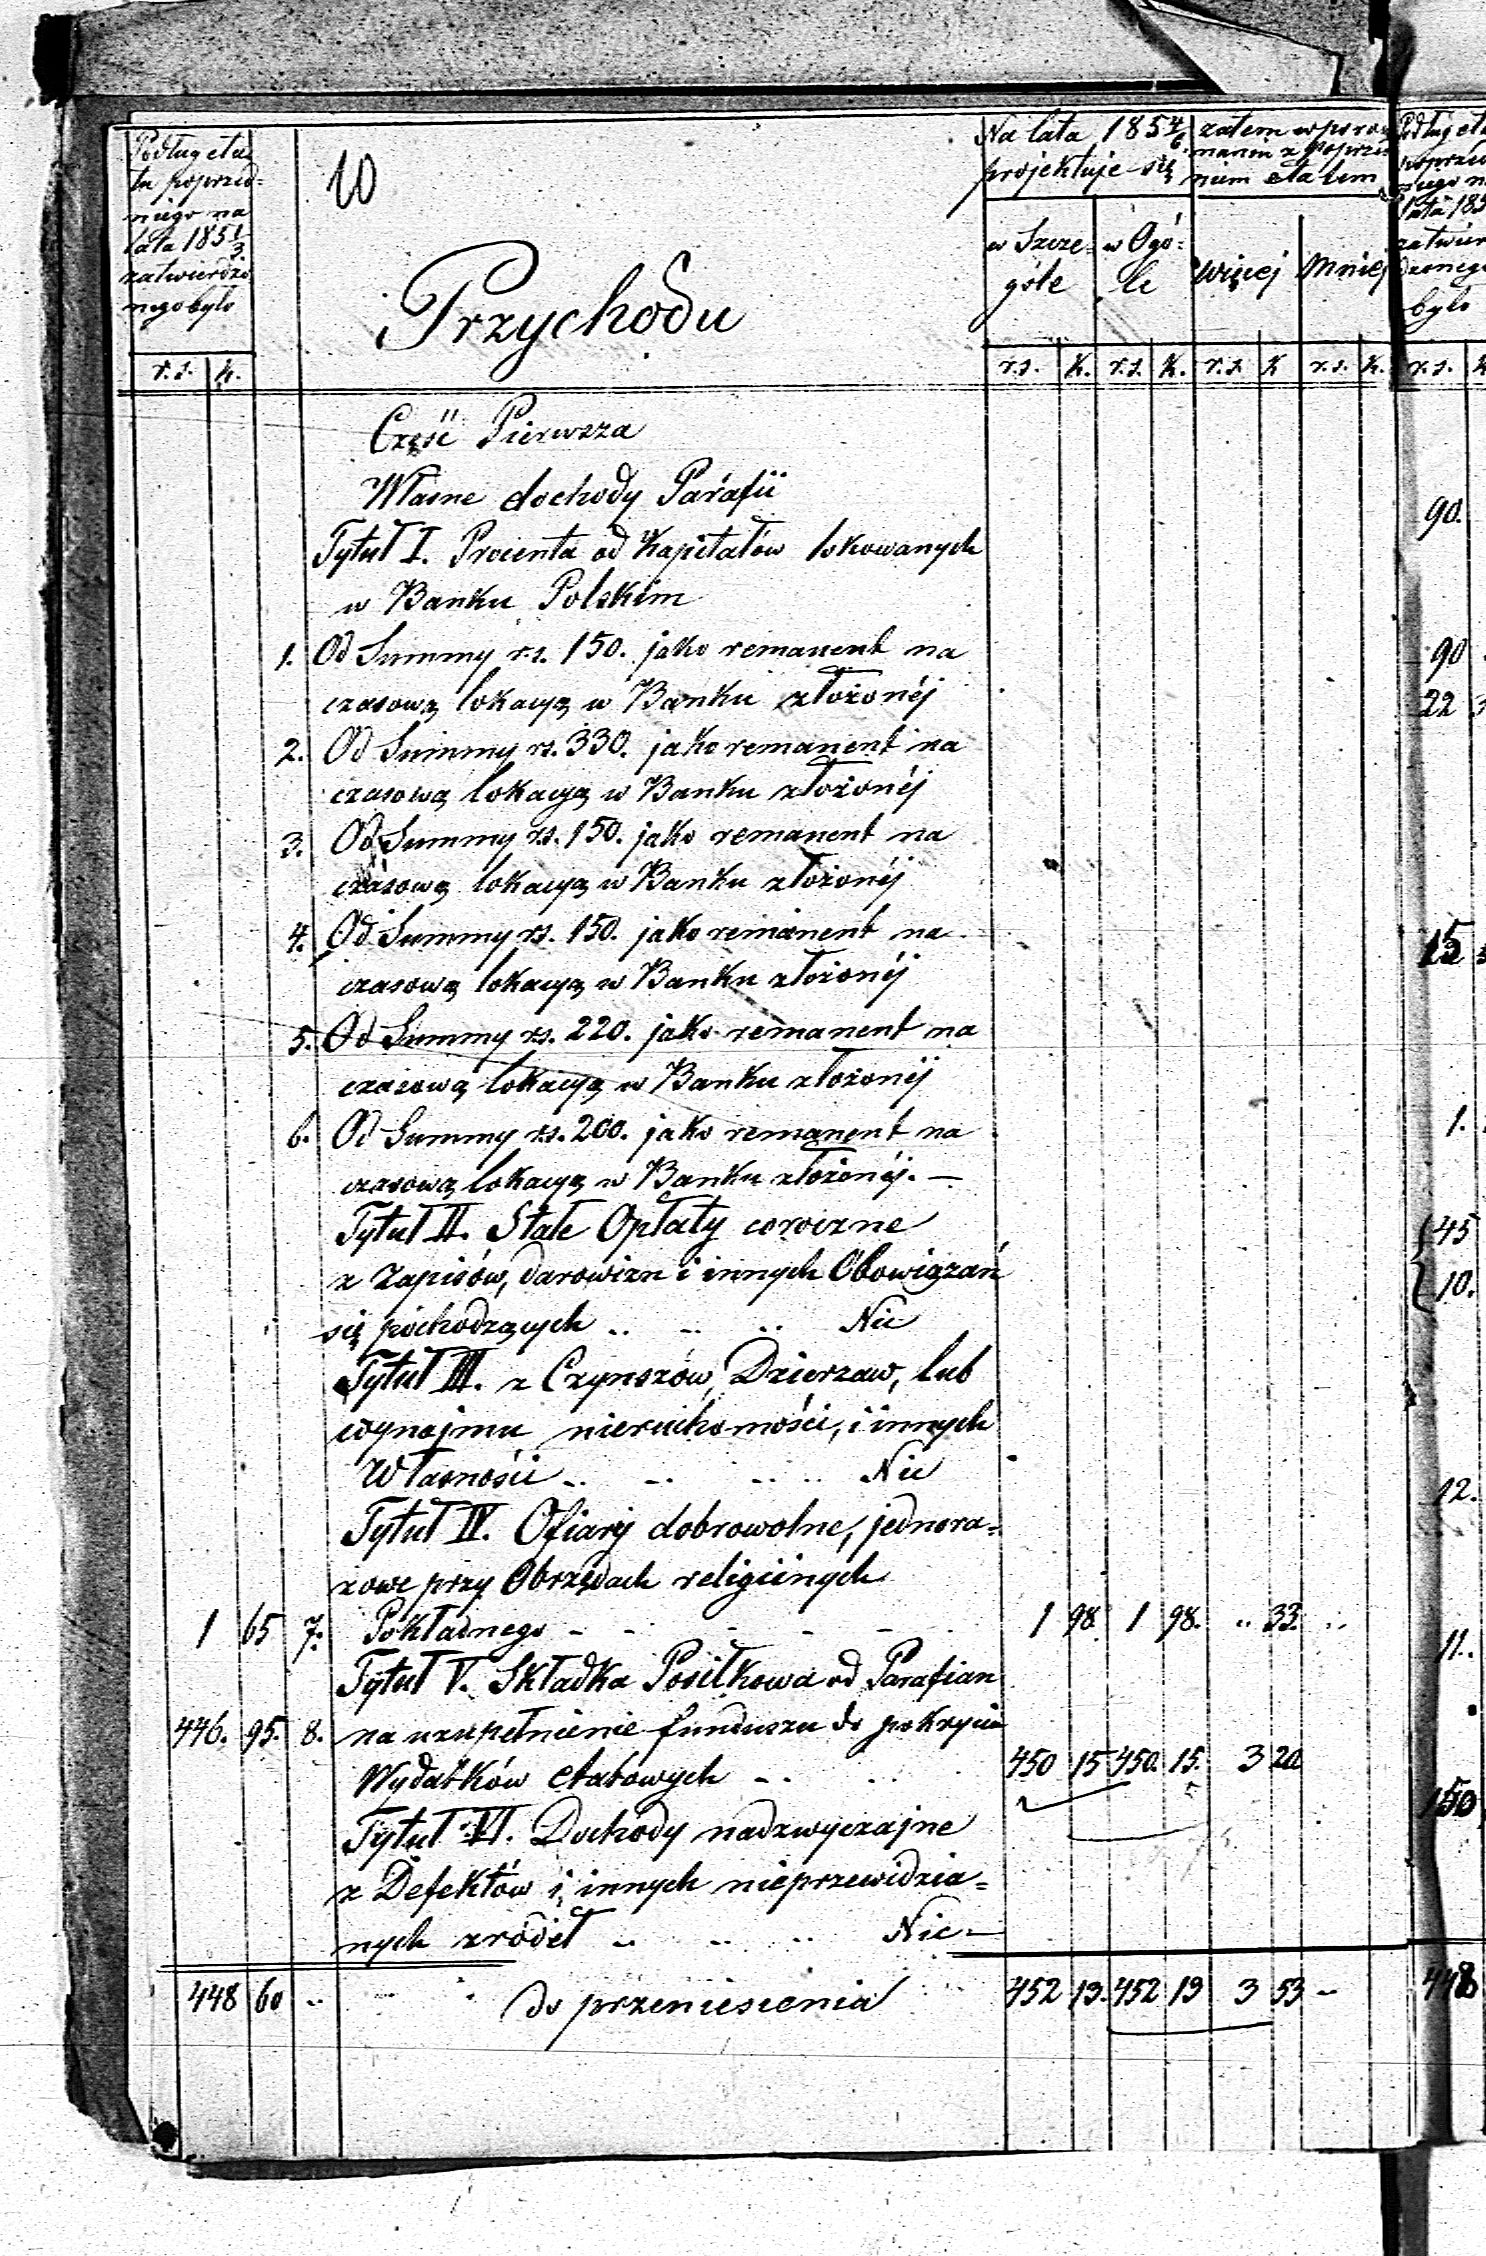 Podług eta-
tu poprzed-
niego na
lata 185 1/3
zatwierdzo
nego było
r. s. k.
10
Przychodu
Na lata 185 4/6
projektuje się
w Szcze-
góle
w Ogó-
le
zatem w poró-
wnaniu z poprze-
nim etatem
Więcej Mniej
r.s. k. r.s. k. r.s. k r.s. k.
Część Pierwsza
Własne dochody Parafii
Tytuł I. Procenta od Kapitałów lokowanych
w Banku Polskim
1. Od Summy r.s. 150. jako remanent na
czasową lokacyą w Banku złożonéj
2. Od Summy rs. 330. jako remanent na
czasową lokacyą w Banku złożonéj
3. Od Summy rs. 150. jako remanent na
czasową lokacyą w Banku złożonéj
4. Od Summy rs. 150. jako remanent na
czasową lokacyą w Banku złożonéj
5. Od Summy rs. 220. jako remanent na
czasową lokacyą w Banku złożonéj
6. Od Summy rs. 200. jako remanent na
czasową lokacyą w Banku złożonéj. —
Tytuł II. Stałe Opłaty coroczne
z zapisów, darowizn i innych Obowiązań
się pochodzących .. .. .. Nic
Tytuł III. z Czynszów, Dzierzaw, lub
wynajmu nieruchomości, i innych
Własności .. .. .. .. Nic
Tytuł IV. Ofiary dobrowolne, jednora-
zowe przy Obrzędach religijnych
1 65 7. Pokładnego - - - - - 1 98. 1 98. .. 33. ..
Tytuł V. Składka Posiłkowa od Parafian
446. 95. 8. na uzupełnienie funduszu do pokrycia
Wydatków etatowych - . . . 450 15 450. 15. 3 20.
Tytuł VI. Dochody nadzwyczajne
z Defektów i innych nieprzewidzia-
nych zródeł .. .. .. Nic —
448 60 .. do przeniesienia 452 13. 452 13 3 53 --
Podług eta
poprzed
niego n
lata 185
zatwier
dzonego
było
r.s. k
90.
90
22
15
1.
45
10.
12.
11.
150
448